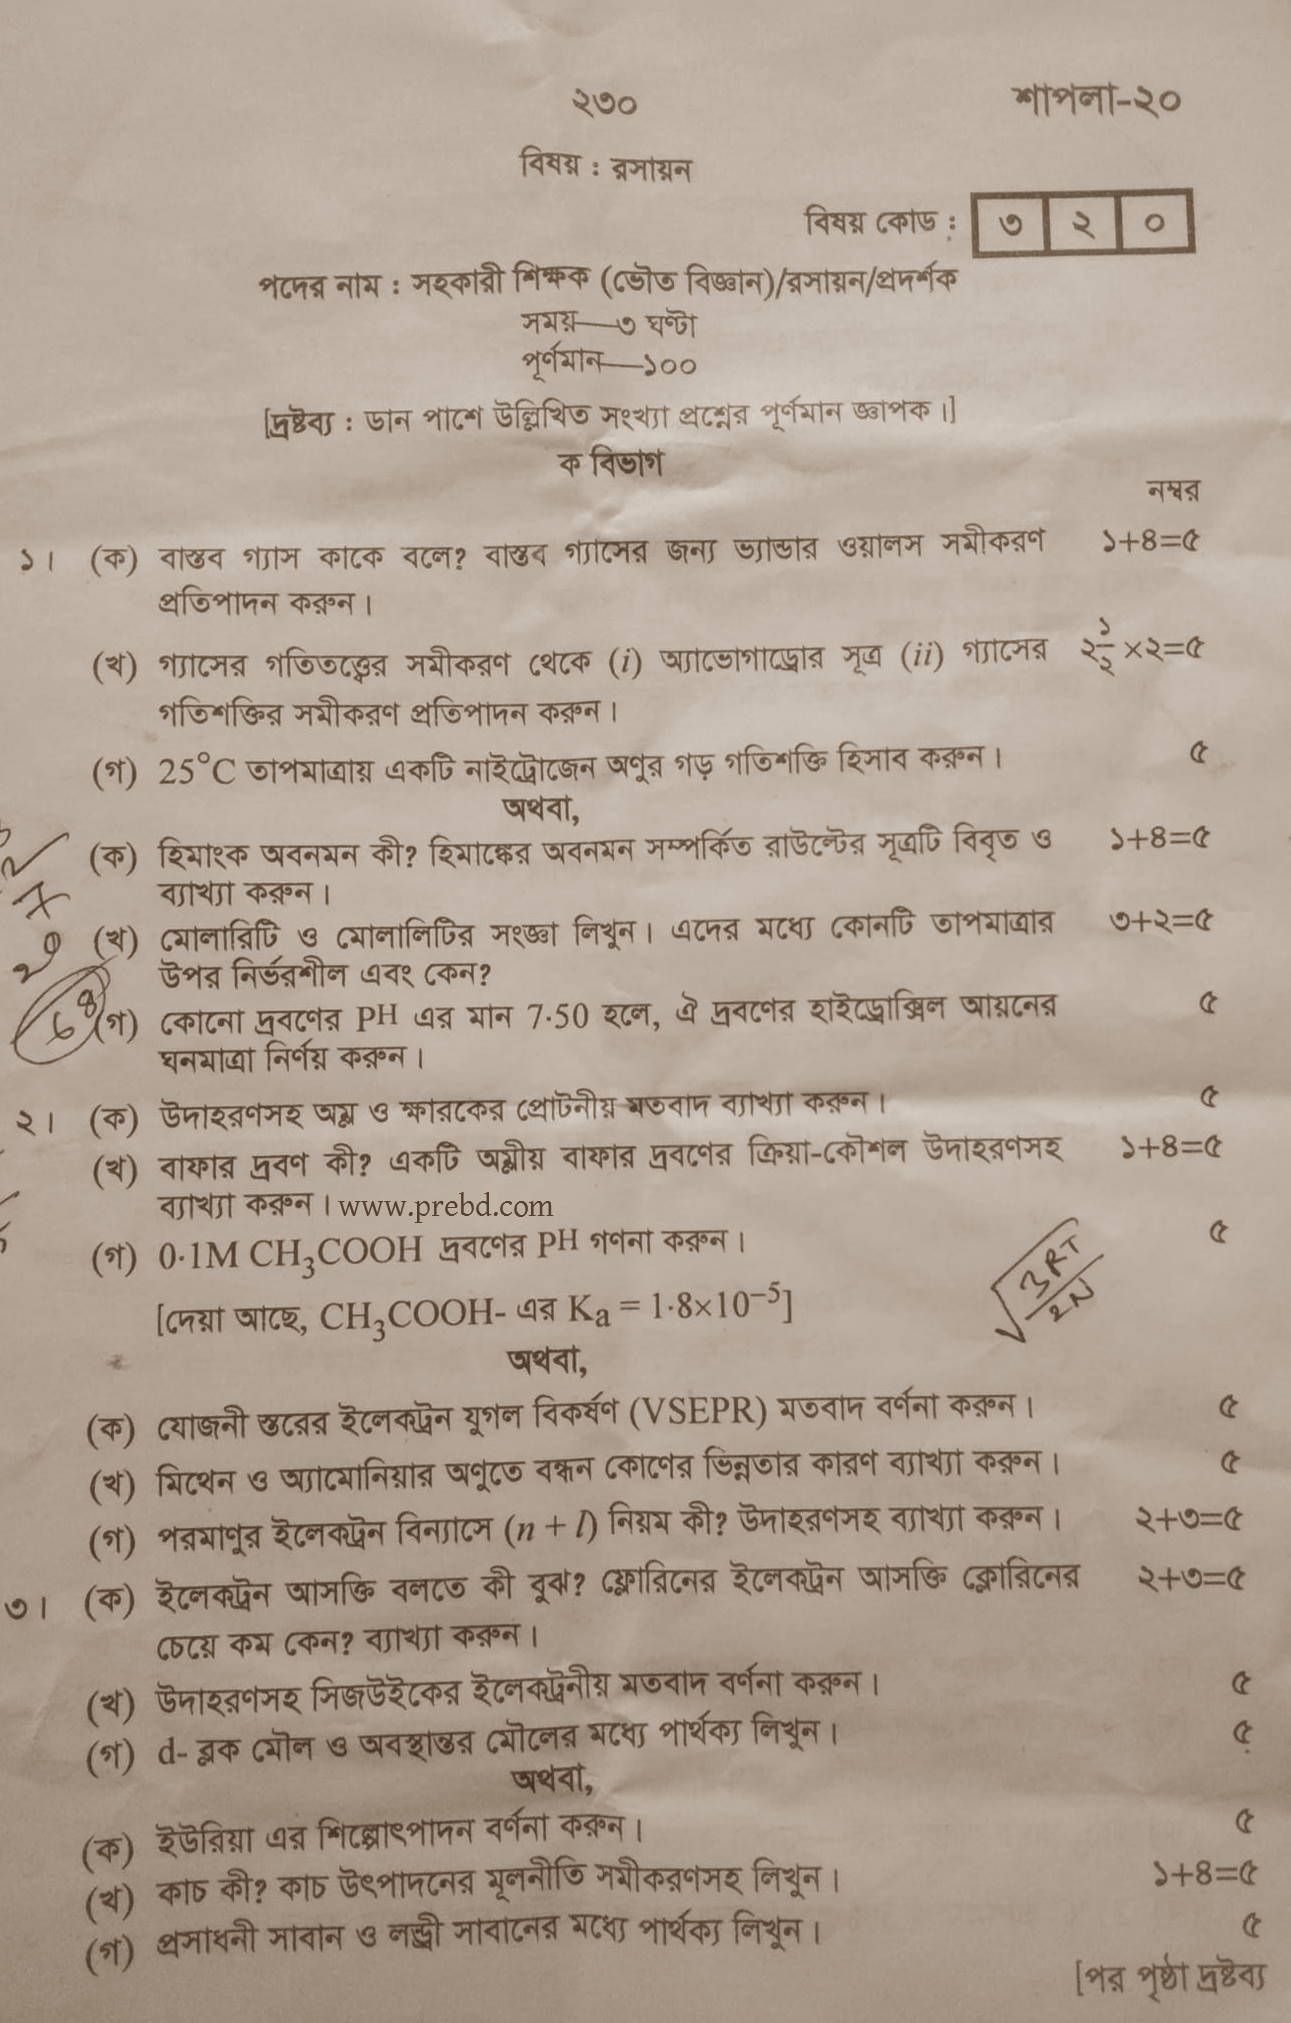 ২৩০
শাপলা-২০
বিষয় : রসায়ন
বিষয় কোড : ৩ ২ ০
পদের নাম : সহকারী শিক্ষক (ভৌত বিজ্ঞান)/রসায়ন/প্রদর্শক
সময়—৩ ঘণ্টা
পূর্ণমান—১০০
[দ্রষ্টব্য : ডান পাশে উল্লিখিত সংখ্যা প্রশ্নের পূর্ণমান জ্ঞাপক।]
ক বিভাগ
নম্বর
১। (ক) বাস্তব গ্যাস কাকে বলে? বাস্তব গ্যাসের জন্য ভ্যান্ডার ওয়ালস সমীকরণ ১+৪=৫
প্রতিপাদন করুন।
(খ) গ্যাসের গতিতত্ত্বের সমীকরণ থেকে (i) অ্যাভোগাড্রোর সূত্র (ii) গ্যাসের ২১/২×২=৫
গতিশক্তির সমীকরণ প্রতিপাদন করুন।
(গ) 25°C তাপমাত্রায় একটি নাইট্রোজেন অণুর গড় গতিশক্তি হিসাব করুন। ৫
অথবা,
(ক) হিমাংক অবনমন কী? হিমাঙ্কের অবনমন সম্পর্কিত রাউল্টের সূত্রটি বিবৃত ও ১+৪=৫
ব্যাখ্যা করুন।
(খ) মোলারিটি ও মোলালিটির সংজ্ঞা লিখুন। এদের মধ্যে কোনটি তাপমাত্রার ৩+২=৫
উপর নির্ভরশীল এবং কেন?
(গ) কোনো দ্রবণের PH এর মান 7·50 হলে, ঐ দ্রবণের হাইড্রোক্সিল আয়নের ৫
ঘনমাত্রা নির্ণয় করুন।
২। (ক) উদাহরণসহ অম্ল ও ক্ষারকের প্রোটনীয় মতবাদ ব্যাখ্যা করুন। ৫
(খ) বাফার দ্রবণ কী? একটি অম্লীয় বাফার দ্রবণের ক্রিয়া-কৌশল উদাহরণসহ ১+৪=৫
ব্যাখ্যা করুন। www.prebd.com
(গ) 0·1M CH₃COOH দ্রবণের PH গণনা করুন। ৫
[দেয়া আছে, CH₃COOH- এর Kₐ = 1·8×10⁻⁵]
√3RT/2N
অথবা,
(ক) যোজনী স্তরের ইলেকট্রন যুগল বিকর্ষণ (VSEPR) মতবাদ বর্ণনা করুন। ৫
(খ) মিথেন ও অ্যামোনিয়ার অণুতে বন্ধন কোণের ভিন্নতার কারণ ব্যাখ্যা করুন। ৫
(গ) পরমাণুর ইলেকট্রন বিন্যাসে (n + l) নিয়ম কী? উদাহরণসহ ব্যাখ্যা করুন। ২+৩=৫
৩। (ক) ইলেকট্রন আসক্তি বলতে কী বুঝ? ফ্লোরিনের ইলেকট্রন আসক্তি ক্লোরিনের ২+৩=৫
চেয়ে কম কেন? ব্যাখ্যা করুন।
(খ) উদাহরণসহ সিজউইকের ইলেকট্রনীয় মতবাদ বর্ণনা করুন। ৫
(গ) d- ব্লক মৌল ও অবস্থান্তর মৌলের মধ্যে পার্থক্য লিখুন। ৫
অথবা,
(ক) ইউরিয়া এর শিল্পোৎপাদন বর্ণনা করুন। ৫
(খ) কাচ কী? কাচ উৎপাদনের মূলনীতি সমীকরণসহ লিখুন। ১+৪=৫
(গ) প্রসাধনী সাবান ও লন্ড্রী সাবানের মধ্যে পার্থক্য লিখুন। ৫
[পর পৃষ্ঠা দ্রষ্টব্য